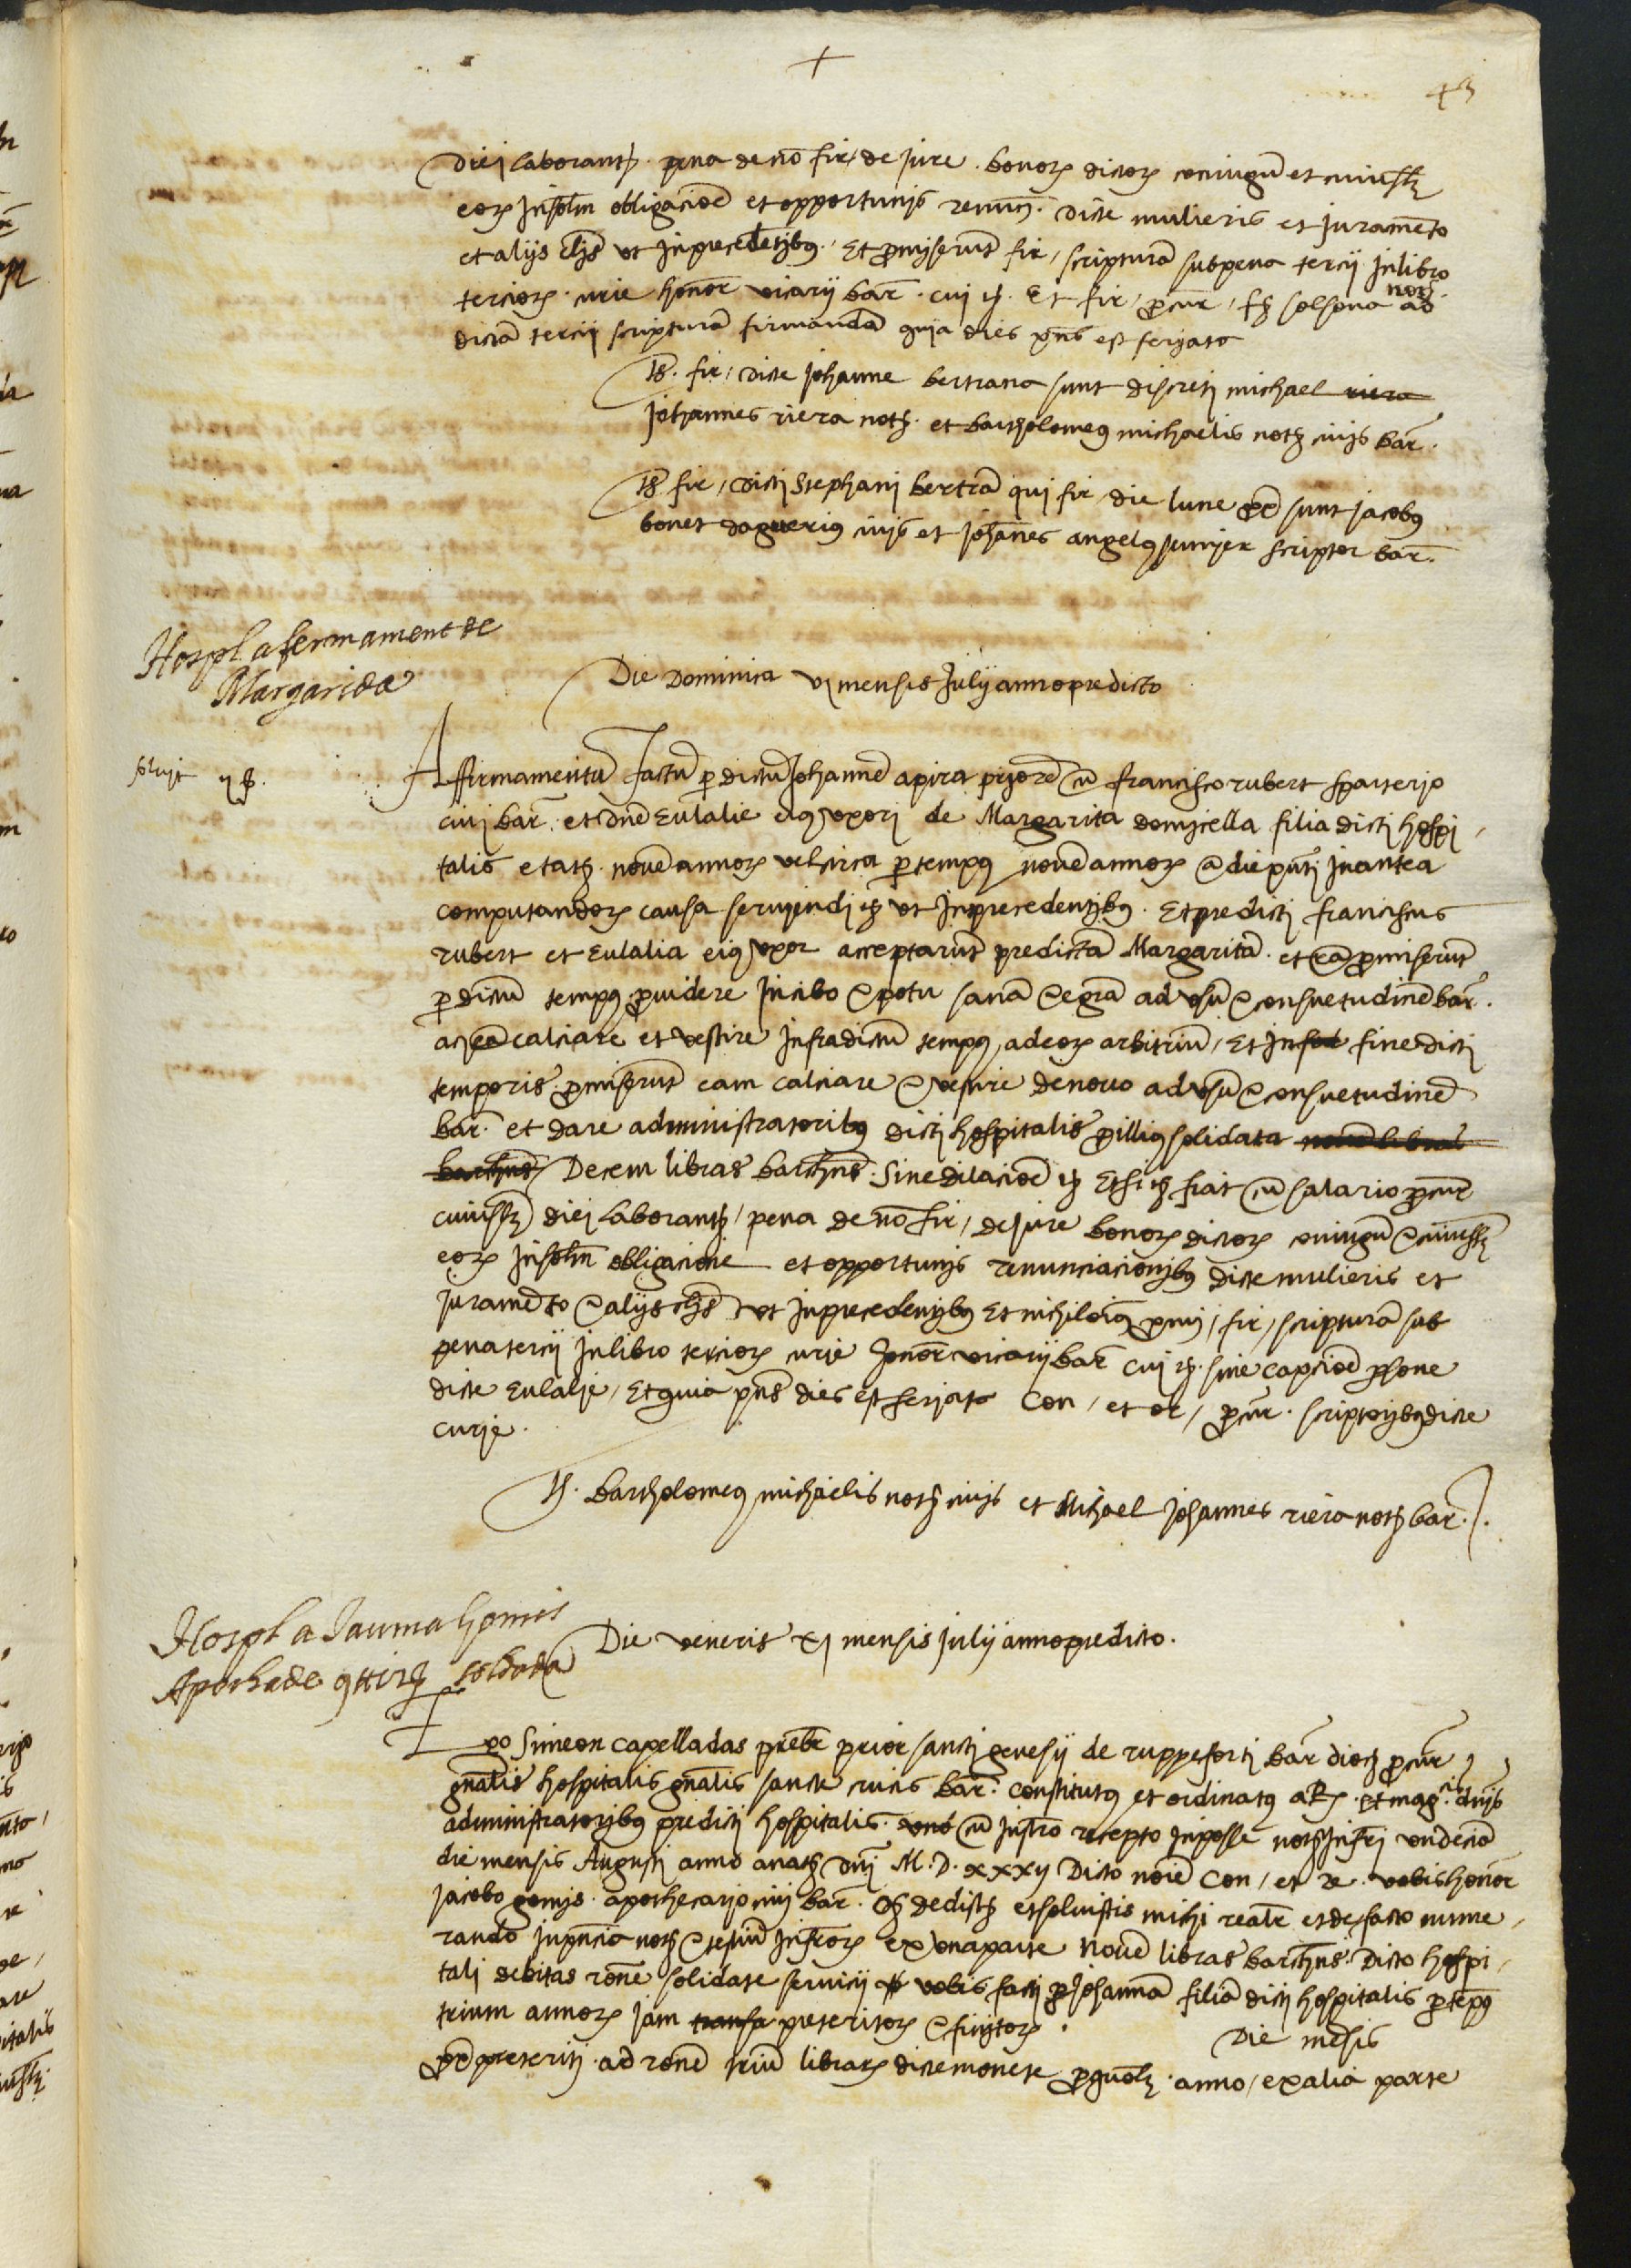 43
diej laborantz. pena de no fir, de jure. bonorz dictorz coniugu et cuiusslz
eorz Insolm obligacioe et opportunjs renunc. dicte mulieris et Jurameto
et alijs clis ut In precedetibus. Et promiserut fir, scriptura sub pena tercij In libro
terciorz. curie honor vicarij bar. cui etc. Et fir, procur, solsona notz. ad
dicta tercij scriptura firmanda quia dies pns est ferjato
Ts. fir, dicte johanne bertrana sunt discreti michael riera
Johannes riera notz. et bartholomeus michaelis notz civis bar.
Ts fir, dicti Stephani bertra qui fir die lune sunt jacobus
bonet daguerius civis et johanes angelus junjer scriptor bar.
Hospl. afermament de
Margarida
Die Dominica vj mensis Julij anno predicto
soluit ij s.
Affirmamentu factu p dictu Johanne apira priore cu francisco rubert sparterjo
civi bar. et dne Eulalie eius uxori de Margarita domicella filia dicti hospi,
talis etatz. nove annorz vel circa p tempus nove annorz a die pnti In antea
computandorz causa serviendi etc ut In precedentibus. Et predicti franciscus
rubert et Eulalia eius uxor acceptarut predicta Margarita. et ea promiserut
p dictu tempus providere In cibo & potu sana & egra ad usu & consuetudine bar.
ac ea calciare et vestire Infra dictu tempus, ad eorz arbitriu, Et In fine dicti
temporis. promiserut eam calciare & vestire de novo ad usu & consuetudine
bar. et dare administratoribus dicti hospitalis pro illius solidata nove libras
barchns Decem libras barchns. Sine dilacioe etc Et si etc fiat cu salario procur
cuiusslz diej laborantz, pena de no fir, de jure bonorz dictorz coniugu & cuiusslz
eorz Insolm obligacione et opportunjs renunciacionjbus dicte mulieris et
Jurameto & alijs clis ut In precedentjbus Et nichilomius promj, fir, scriptura sub
pena tercij In libro terciorz curje honor vicarij bar cui etc. sine capcioe psone
dicte Eulalje, Et quia pns dies est ferjato Con, et or, procur. scriptorjbus dicte
curje.
Ts. bartholomeus michaelis notz civis et Michael Johannes riera notz bar.
Hospl a Jauma homis
Apocha de soldada
Die veneris xj mensis julij anno predicto.
Ego Simeon capelladas prebr prior sancti genesij de ruppeforti bar diocs procur
gnalis hospitalis gnalis sancte crucis bar. constitutus et ordinatus a Rz. et magcis. dnis
administratoribus predicti hospitalis. cu Instro recepto In posse notz Infri undecio
die mensis Augusti anno a natz dnj M.D.xxxij Dicto noie Con, et re. vobis honor
Jacobo gomis. apothecarjo civi bar. qz dedistz et solvistis michi realr et de facto nume,
rando In pncia notz & testiu Infrorz ex una parte Nove libras barchns. Dicto hospi,
tali debitas rone solidate servicij vobis facti p Johanna filia dicti hospitalis p tepus
trium annorz jam transa preteritorz & finitorz. Die mesis
preteriti. ad rone triu librarz dicte monete pro quolz. anno, ex alia parte